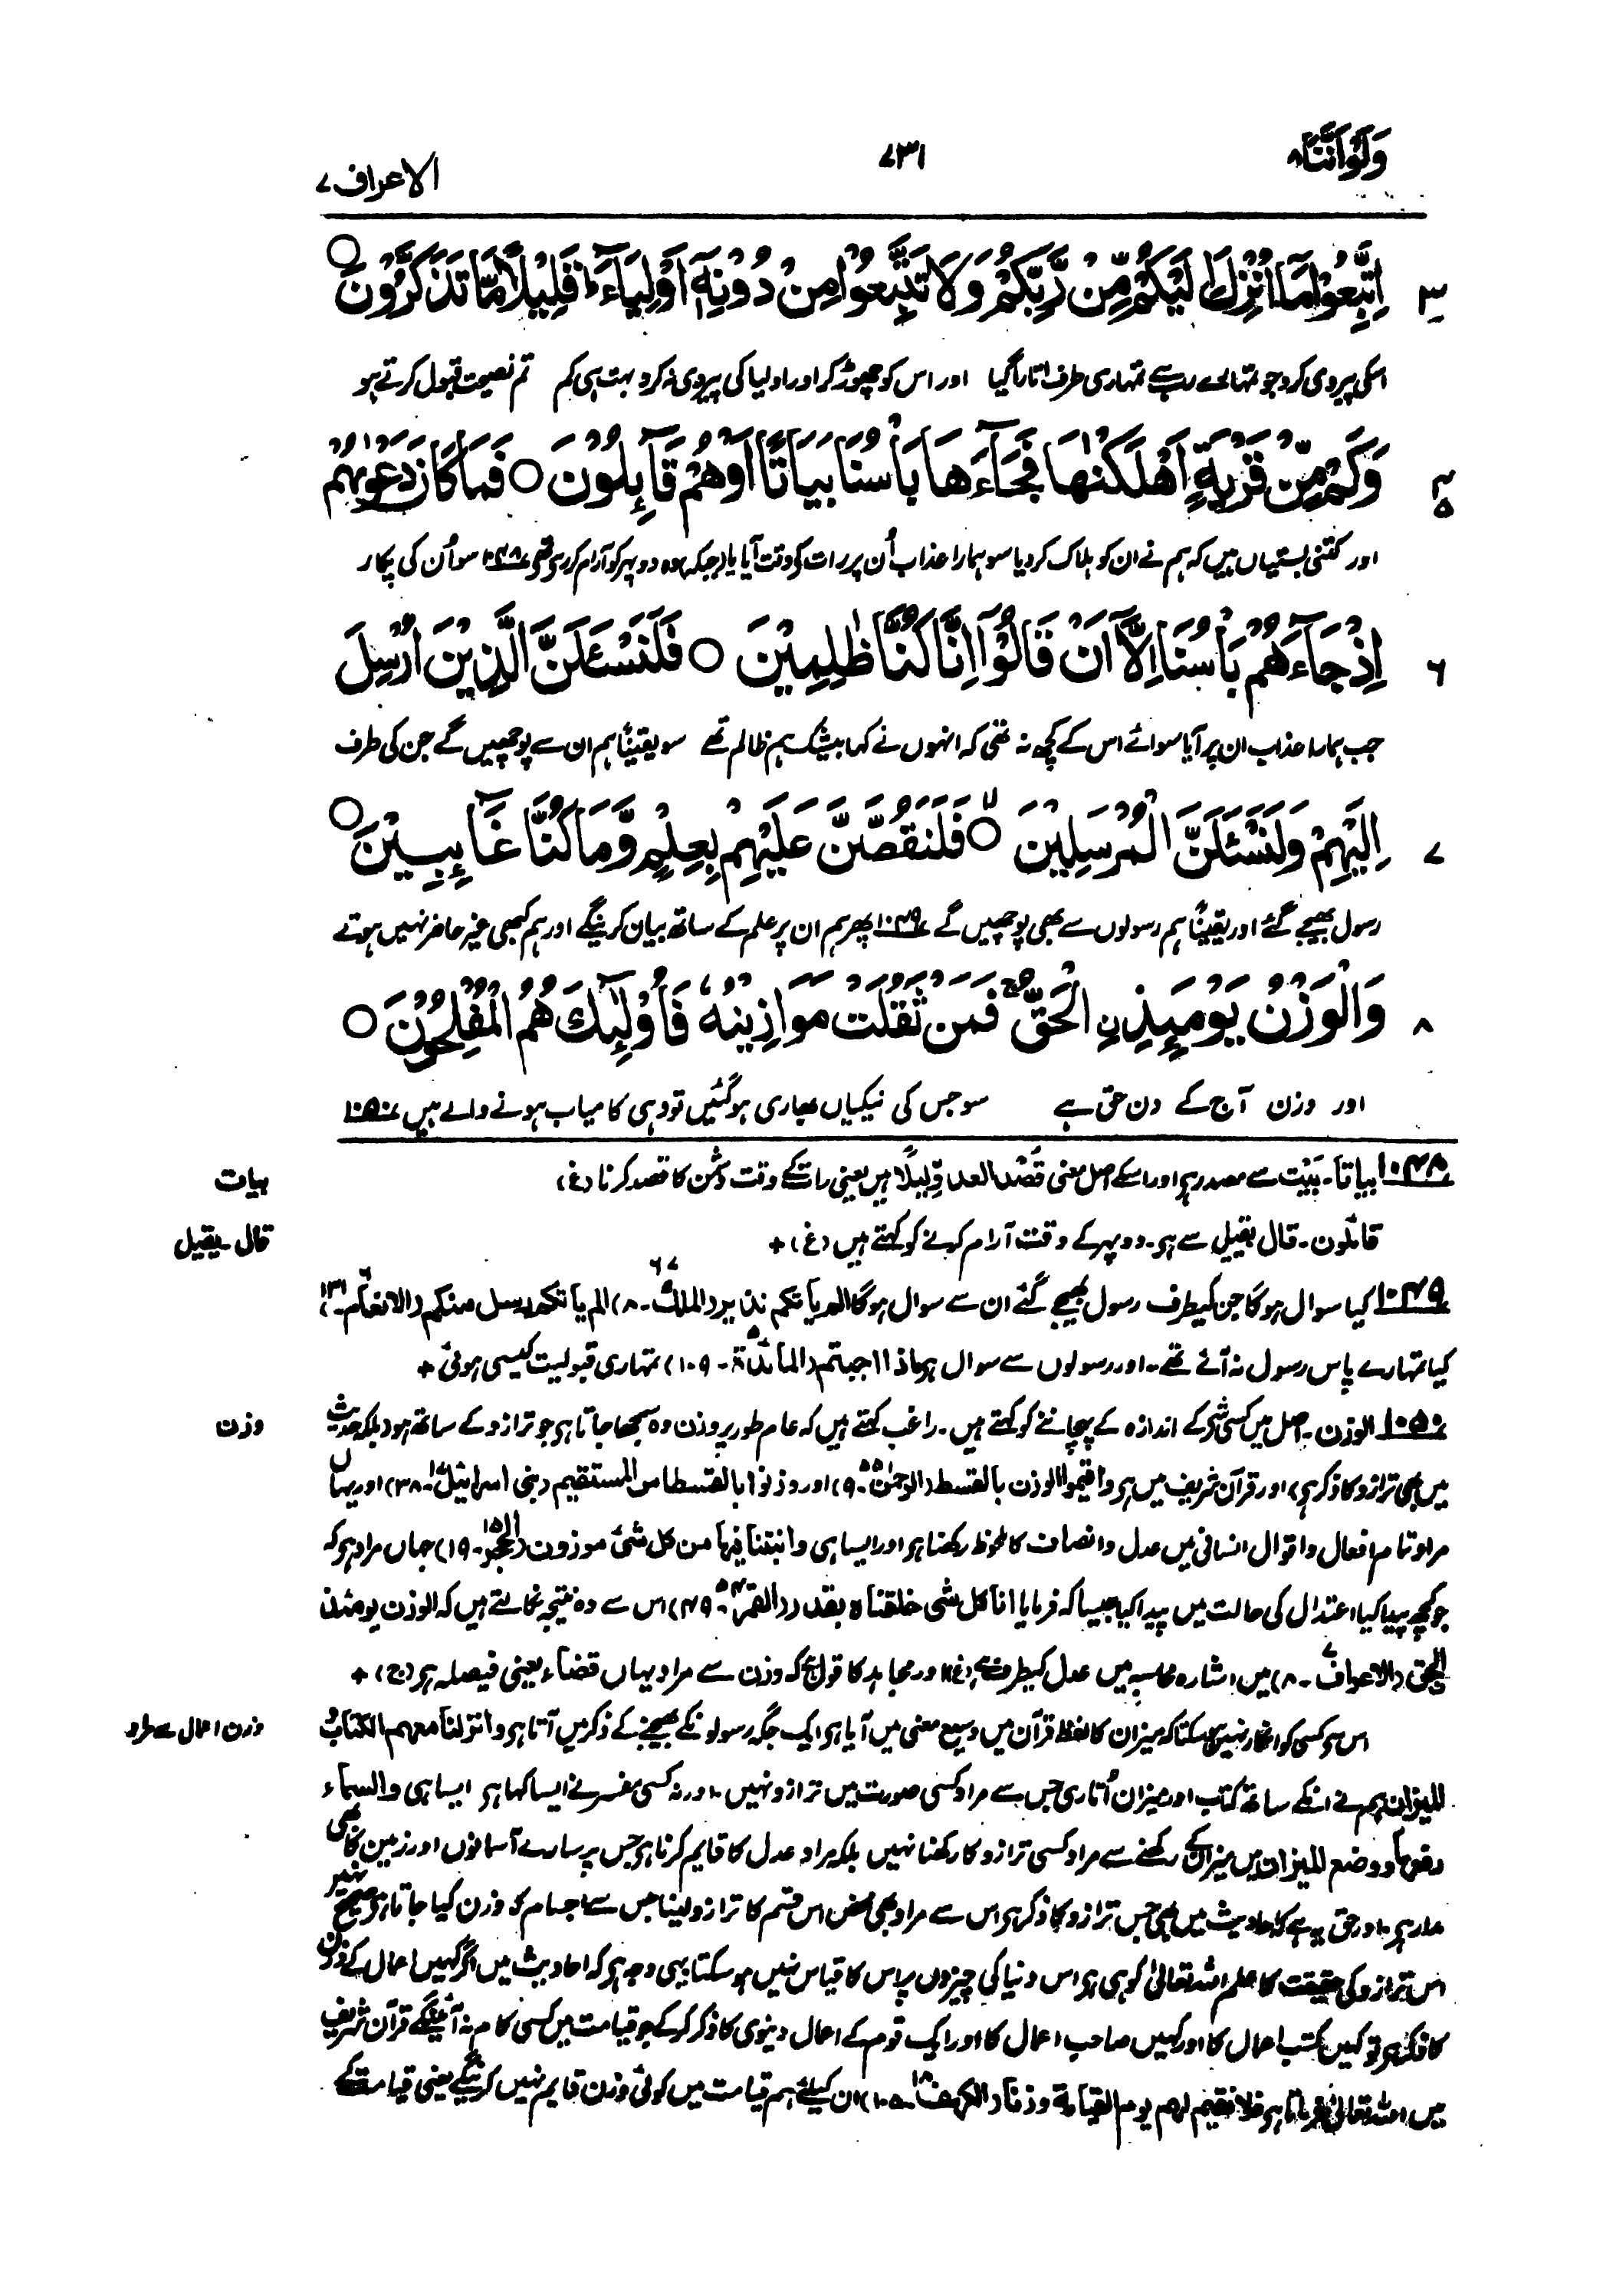 وَلَوْاَنَّنَا ۸
۷۳۱
الاعراف ۷
۳ اِتَّبِعُوْا مَاۤ اُنْزِلَ اِلَيْكُمْ مِّنْ رَّبِّكُمْ وَلَا تَتَّبِعُوْا مِنْ دُوْنِهٖۤ اَوْلِيَآءَ ؕ قَلِيْلًا مَّا تَذَكَّرُوْنَ ○
اسکی پیروی کرو جو تمہارے رب سے تمہاری طرف اتارا گیا اور اس کو چھوڑ کر اور اولیا کی پیروی نہ کرو بہت ہی کم تم نصیحت قبول کرتے ہو
۴ ۵ وَكَمْ مِّنْ قَرْيَةٍ اَهْلَكْنٰهَا فَجَآءَهَا بَاْسُنَا بَيَاتًا اَوْ هُمْ قَآئِلُوْنَ ○ فَمَا كَانَ دَعْوٰىهُمْ
اور کتنی بستیاں ہیں کہ ہم نے ان کو ہلاک کر دیا سو ہمارا عذاب اُن پر رات کو وقت آیا یا (جبکہ) وہ دوپہر کو آرام کر رہے تھے ۱۰۴۸ سو اُن کی پکار
۶ اِذْ جَآءَهُمْ بَاْسُنَاۤ اِلَّاۤ اَنْ قَالُوْۤا اِنَّا كُنَّا ظٰلِمِيْنَ ○ فَلَنَسْئَلَنَّ الَّذِيْنَ اُرْسِلَ
جب ہمارا عذاب ان پر آیا سوائے اس کے کچھ نہ تھی کہ انہوں نے کہا بیشک ہم ظالم تھے سو یقیناً ہم ان سے پوچھیں گے جن کی طرف
۷ اِلَيْهِمْ وَلَنَسْئَلَنَّ الْمُرْسَلِيْنَ ○ فَلَنَقُصَّنَّ عَلَيْهِمْ بِعِلْمٍ وَّمَا كُنَّا غَآئِبِيْنَ ○
رسول بھیجے گئے اور یقیناً ہم رسولوں سے بھی پوچھیں گے ۱۰۴۹ پھر ہم ان پر علم کے ساتھ بیان کرینگے اور ہم کبھی غیر حاضر نہیں ہوتے
۸ وَالْوَزْنُ يَوْمَئِذِنِ الْحَقُّ ۚ فَمَنْ ثَقُلَتْ مَوَازِيْنُهٗ فَاُولٰٓئِكَ هُمُ الْمُفْلِحُوْنَ ○
اور وزن آج کے دن حق ہے سو جس کی نیکیاں بھاری ہو گئیں تو وہی کامیاب ہونے والے ہیں ۱۰۵۰
۱۰۴۸ بیاتا۔ بَیَّت سے مصدر ہی اور اسکے اصل معنی قَصْدُ العدوِّ لیلًا ہیں یعنی رات کے وقت دشمن کا قصد کرنا (غ)
بیات
قائلون۔ قال یقیل سے ہی۔ دوپہر کے وقت آرام کرنے کو کہتے ہیں (غ) +
قال۔ یقیل
۱۰۴۹ کیا سوال ہوگا جن کیطرف رسول بھیجے گئے ان سے سوال ہوگا الم یأتکم نذیر (الملك ۶۷۔ ۸) الم یأتکم رسل منکم (الانعام ۶۔ ۱۳۱)
کیا تمہارے پاس رسول نہ آئے تھے۔ اور رسولوں سے سوال ہی ماذا اجبتم (المائدۃ ۵۔ ۱۰۹) تمہاری قبولیت کیسی ہوئی +
۱۰۵۰ الوزن۔ اصل میں کسی شی کے اندازہ کے پہچاننے کو کہتے ہیں۔ راغب کہتے ہیں کہ عام طور پر وزن وہ سمجھا جاتا ہی جو ترازو کے ساتھ ہو (بلکہ حدیث
وزن
میں بھی ترازو کا ذکر ہی) اور قرآن شریف میں ہی واقیموا الوزن بالقسط (الرحمٰن ۵۵۔ ۹) اور وزنوا بالقسطاس المستقیم (بنی اسرائیل ۱۷۔ ۳۸) اور یہاں
مراد تمام افعال و اقوال انسانی میں عدل و انصاف کا ملحوظ رکھنا ہی اور ایسا ہی وانبتنا فیہا من کل شیٔ موزون (الحجر ۱۵۔ ۱۹) جہاں مراد ہی کہ
جو کچھ پیدا کیا اعتدال کی حالت میں پیدا کیا جیسا کہ فرمایا انا کل شی خلقناہ بقدر (القمر ۵۴۔ ۴۹) اس سے وہ نتیجہ نکالتے ہیں کہ الوزن یومئذ
الحق (الاعراف ۷۔ ۸) میں اشارہ محاسبہ میں عدل کیطرف ہے (غ) اور مجاہد کا قول ہے کہ وزن سے مراد یہاں قضاء یعنی فیصلہ ہی (ج) +
اس سی کسی کو انکار نہیں ہو سکتا کہ میزان کا لفظ قرآن میں وسیع معنی میں آیا ہی ایک جگہ رسولونکے بھیجنے کے ذکر میں آتا ہی وانزلنا معہم الکتاب و
وزن اعمال سے مراد
المیزان ہم نے انکے ساتھ کتاب اور میزان اُتاری جس سے مراد کسی صورت میں ترازو نہیں۔ اور نہ کسی مفسر نے ایسا کہا ہی ایسا ہی والسماء
رفعہا ووضع المیزان میں میزان کے رکھنے سے مراد کسی ترازو کا رکھنا نہیں بلکہ مراد عدل کا قایم کرنا ہی جس پر سارے آسمانوں اور زمین کا بھی
مدار ہی۔ اور حق یہ ہے کہ احادیث میں بھی جس ترازو کا ذکر ہی اس سے مراد بھی محض اس قسم کا ترازو لینا جس سے اجسام کا وزن کیا جاتا ہی صحیح نہیں
اس ترازو کی حقیقت کا علم اللہ تعالیٰ کو ہی ہی اس دنیا کی چیزوں پر اس کا قیاس نہیں ہو سکتا یہی وجہ ہی کہ احادیث میں اگر کہیں اعمال کے وزن
کا ذکر ہی تو کہیں کتب اعمال کا اور کہیں صاحب اعمال کا اور ایک قوم کے اعمال دنیوی کا ذکر کر کے جو قیامت میں کسی کام نہ آئینگے قرآن شریف
میں اللہ تعالیٰ فرماتا ہی فلا نقیم لہم یوم القیامة وزنا (الکہف ۱۸۔ ۱۰۵) ان کیلئے ہم قیامت میں کوئی وزن قایم نہیں کرینگے یعنی قیامت کے